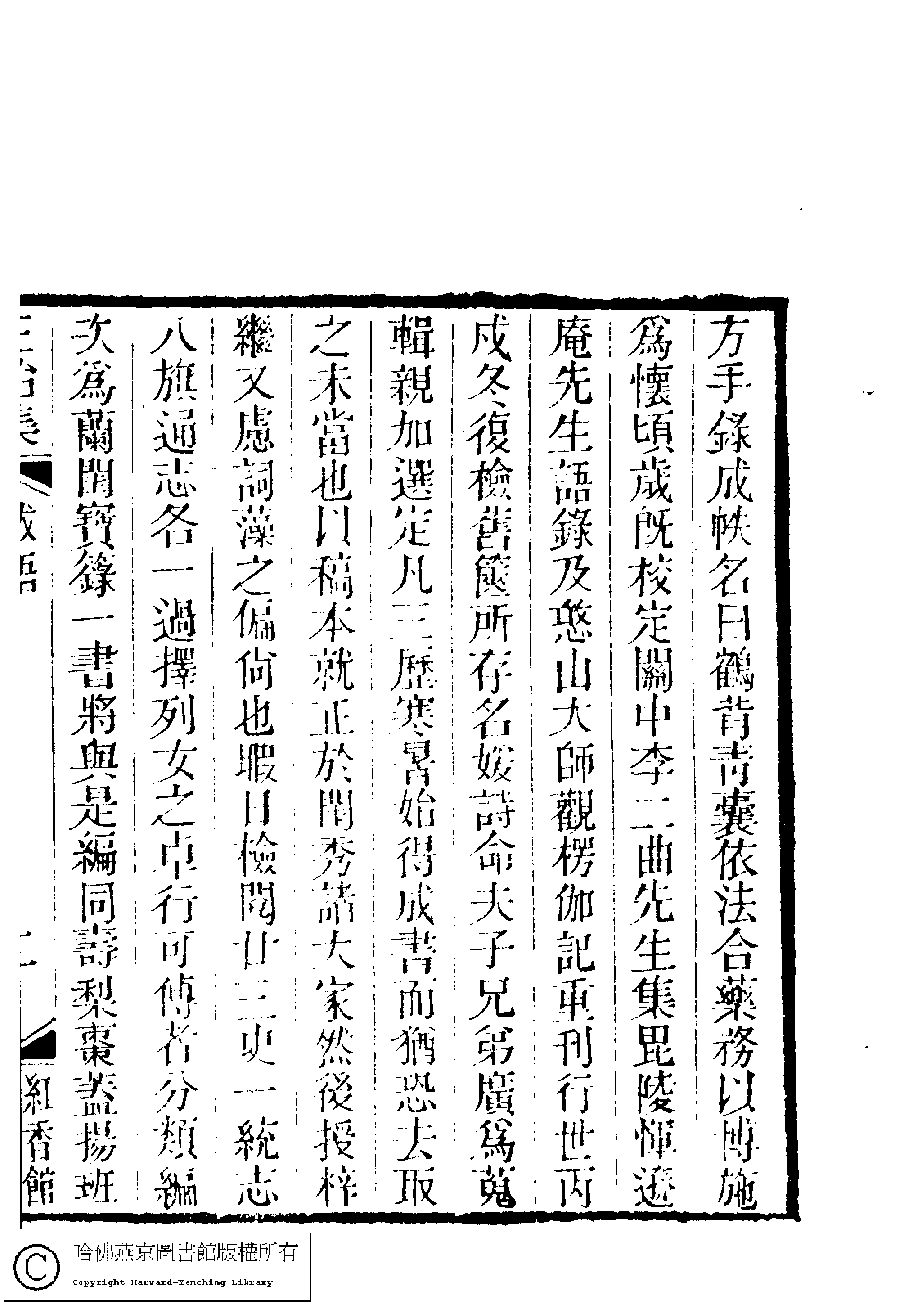 方手錄成帙名曰鶴背青囊依法合藥務以博施
為懷頃歲既校定關中李二曲先生集毘陵惲遜
庵先生語錄及憨山大師觀楞伽記重刊行世丙
戍冬復檢舊篋所存名媛詩命夫子兄弟廣為蒐
輯親加選定凡三歷寒暑始得成書而猶恐去取
之未當也以稿本就正於閨秀諸大家然後授梓
繼又慮詞藻之偏尙也暇日檢閱廿三史一統志
八旗通志各一過擇列女之卓行可傳者分類編
次為蘭閨寶錄一書將與是編同壽梨棗蓋揚班
紅香館
哈佛燕京圖書館版權所有
Copyright Harvard-Yenching Library